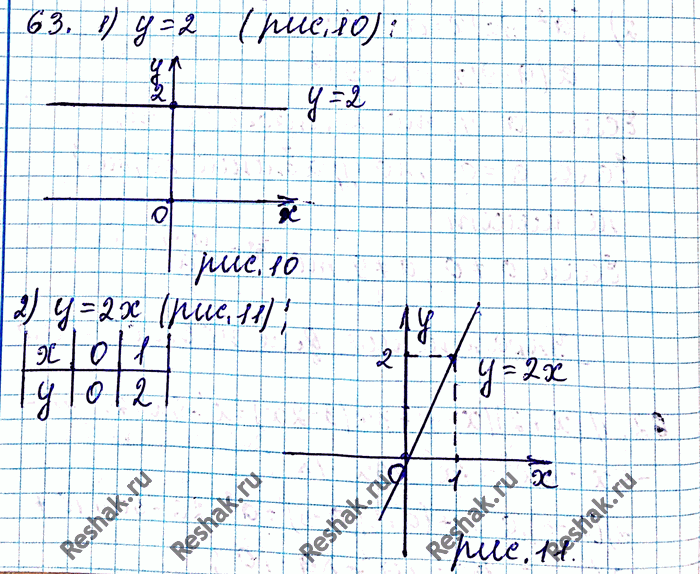 63. 1) y=2 (рис.10):
y
2
y=2
0
x
рис.10
2) y=2x (рис.11);
x 0 1
y 0 2
y
2
y=2x
0
1
x
рис.11.
Reshak.ru Reshak.ru Reshak.ru Reshak.ru Reshak.ru